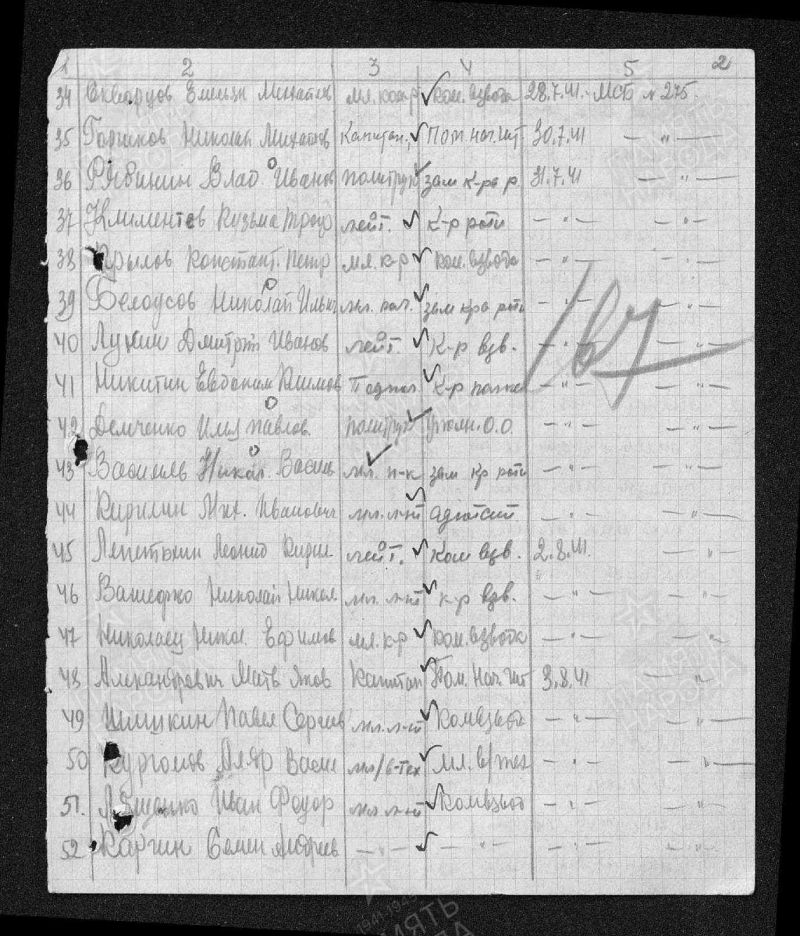 1 2 3 4 5 2
34 Скварцов Емельян Михайлов мл. ком-р ком. взвода 28.7.41. МСБ № 275.
35 Горшков Николай Михайлов Капитан, Пом. нач. шт 30.7.41 — " —
36 Рябинин Влад. Иванов политрук зам к-ра р. 31.7.41 — " —
37 Климентов Кузьма лейт. К-р роты — " — — " —
38 Крылов Константин. Петр мл. к-р ком. взвода — " — — " —
39 Белоусов Николай Ильич мл. пол. зам кра роты — " — — " —
40 Лунин Дмитрий Иванов лейт. К-р взв. — " — — " —
41 Никитин Евдоким Климов К-р полка — " — — " —
42 Демченко Илья Павлов политрук уполн. О.О. — " — — " —
43 Василь мл. п-к зам кр роты — " — — " —
44 Кирилин Мих. Иванович мл. л-нт адъютант — " — — " —
45 Леонид Кирил. лейт. Ком взв. 2.8.41. — " —
46 Николай Никол мл. л-нт к-р взв. — " — — " —
47 Николаец Никол Ефимов мл. к-р ком. взвода — " — — " —
48 Александрович Матв Яков Капитан Пом. Нач. шт 3.8.41 — " —
49 Шишкин Павел Сергеев мл. л-нт Комвзвод — " — — " —
50 Васил мл/в-тех мл. в/тех — " — — " —
51. Иван Федор мл. л-нт Комвзвод — " — — " —
52 Каргин Семен Андреев — " — — " — — " — — " —
167
ПАМЯТЬ НАРОДА
1941-1945